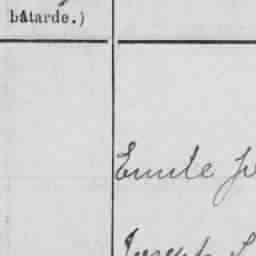 bâtarde.)
Emile
Joseph